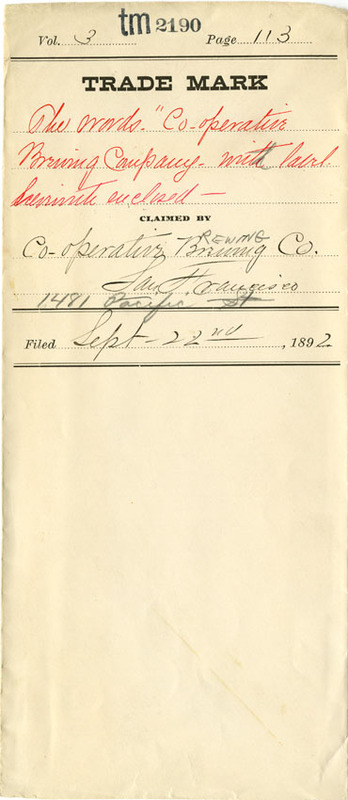 tm 2190
Vol. 3 Page 113
TRADE MARK
The words "Co-operative
Brewing Company" with label
herewith enclosed —
CLAIMED BY
REWING
Co-operative Brewing Co.
San Francisco
1481 Pacific St
Filed Sept - 22nd, 1892